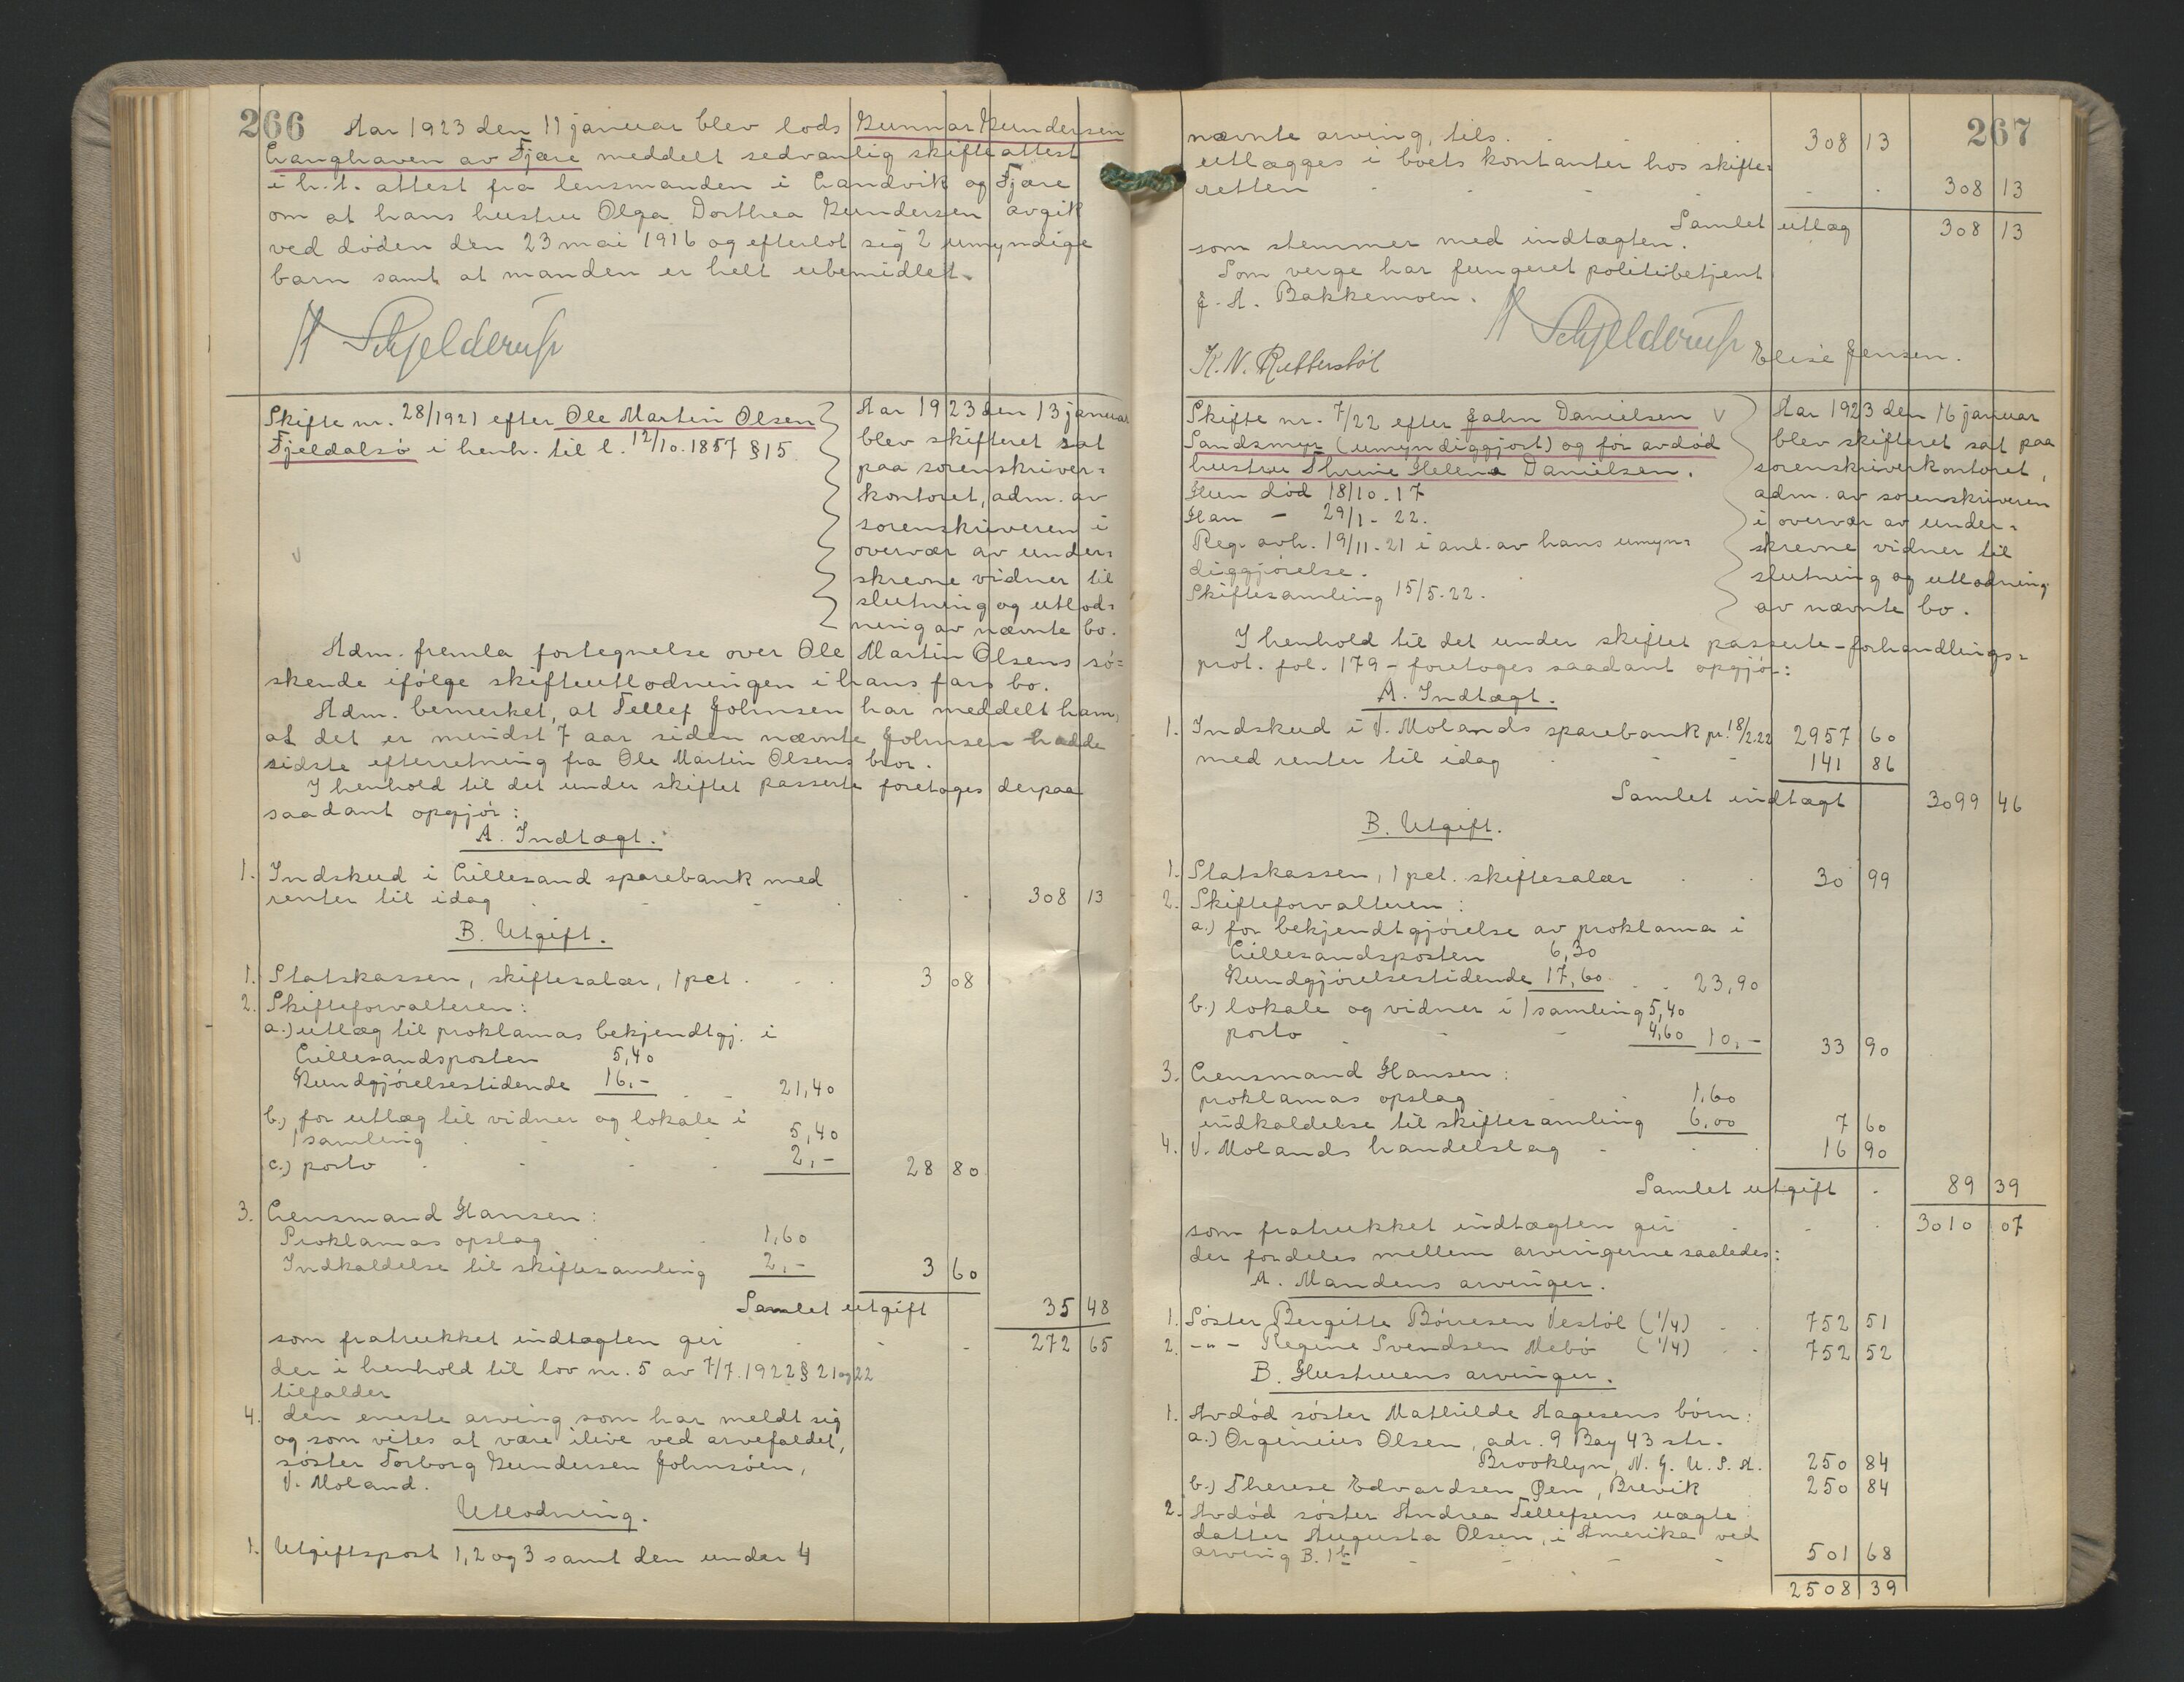 266
Aar 1923 den 11 januar blev lods Gunnar Gundersen
Langhaven av Fjære meddelt sedvanlig skifteattest
i h.t. attest fra lensmanden i Landvik og Fjære
om at hans hustru Olga Dorthea Gundersen avgik
ved døden den 23 mai 1916 og efterlot sig 2 umyndige
barn samt at manden er helt ubemidlet.
H Schjelderup
Skifte nr. 28/1921 efter Ole Martin Olsen
Fjeldalsø i henh. til l. 12/10.1857 §15
Aar 1923 den 13 januar
blev skifteret sat
paa sorenskriver=
kontoret, adm. av
sorenskriveren i
overvær av under=
skrevne vidner til
slutning og utlod=
ning av nævnte bo.
Adm. fremla fortegnelse over Ole Martin Olsens sø=
skende ifølge skifteutlodningen i hans fars bo.
Adm. bemerket, at Tellef Johnsen har meddelt ham,
at det er mindst 7 aar siden nævnte Johnsen hadde
sidste efterretning fra Ole Martin Olsens bror.
I henhold til det under skiftet passerte foretoges derpaa
saadant opgjør:
A. Indtægt.
1. Indskud i Lillesand sparebank med
renter til idag 308 13
B. Utgift.
1. Statskassen, skiftesalær, 1 pct. 3 08
2. Skifteforvalteren:
a.) utlæg til proklamas bekjendtgj. i
Lillesandsposten 5,40
Kundgjørelsestidende 16,- 21,40
b.) for utlæg til vidner og lokale i
1 samling 5,40
c.) porto 2,- 28 80
3. Lensmand Hansen:
Proklamas opslag 1,60
Indkaldelse til skiftesamling 2,- 3 60
Samlet utgift 35 48
som fratrukket indtægten gir 272 65
der i henhold til lov nr. 5 av 7/7.1922 § 21 og 22
tilfalder
4. den eneste arving som har meldt sig
og som vites at være ilive ved arvefaldet,
søster Torborg Gundersen Johnsøen,
V. Moland.
Utlodning.
1. Utgiftspost 1, 2 og 3 samt den under 4
267
nævnte arving, tils. 308 13
utlægges i boets kontanter hos skifte=
retten 308 13
Samlet utlæg 308 13
som stemmer med indtægten.
Som verge har fungeret politibetjent
J. A. Bakkemoen.
H Schjelderup
K. N. Rutterstøl Elise Jensen.
Skifte nr. 7/22 efter Jahn Danielsen
Landsmyr (umyndiggjort) og før avdød
hustru Thrine Helene Danielsen.
Hun død 18/10.17
Han - 29/1-22.
Reg. avh. 19/11-21 i anl. av hans umyn=
diggjørelse.
Skiftesamling 15/5.22.
Aar 1923 den 16 januar
blev skifteret sat paa
sorenskriverkontoret,
adm. av sorenskriveren
i overvær av under=
skrevne vidner til
slutning og utlodning
av nævnte bo.
I henhold til det under skiftet passerte - forhandlings=
prot. fol. 179 - foretoges saadant opgjør:
A. Indtægt.
1. Indskud i V. Molands sparebank pr. 18/2.22 2957 60
med renter til idag 141 86
Samlet indtægt 3099 46
B. Utgift.
1. Statskassen, 1 pct. skiftesalær 30 99
2. Skifteforvalteren:
a.) for bekjendtgjørelse av proklama i
Lillesandsposten 6,30
Kundgjørelsestidende 17,60 23,90
b.) lokale og vidner i 1 samling 5,40
porto 4,60 10,- 33 90
3. Lensmand Hansen:
proklamas opslag 1,60
indkaldelse til skiftesamling 6,00 7 60
4. V. Molands handelslag 16 90
Samlet utgift 89 39
som fratrukket indtægten gir 3010 07
der fordeles mellem arvingerne saaledes:
A. Mandens arvinger.
1. Søster Bergitte Børresen Vestøl (1/4) 752 51
2. -"- Regine Svendsen Mebø (1/4) 752 52
B. Hustruens arvinger.
1. Avdød søster Mathilde Aagesens børn:
a.) Orginius Olsen, adr. 9 Bay 43 str.
Brooklyn, N. Y. U. S. A. 250 84
b.) Therese Edvardsen Øen, Brevik 250 84
2. Avdød søster Andrea Tellefsens uægte
datter Augusta Olsen, i Amerika ved
arving B. 1b 501 68
2508 39